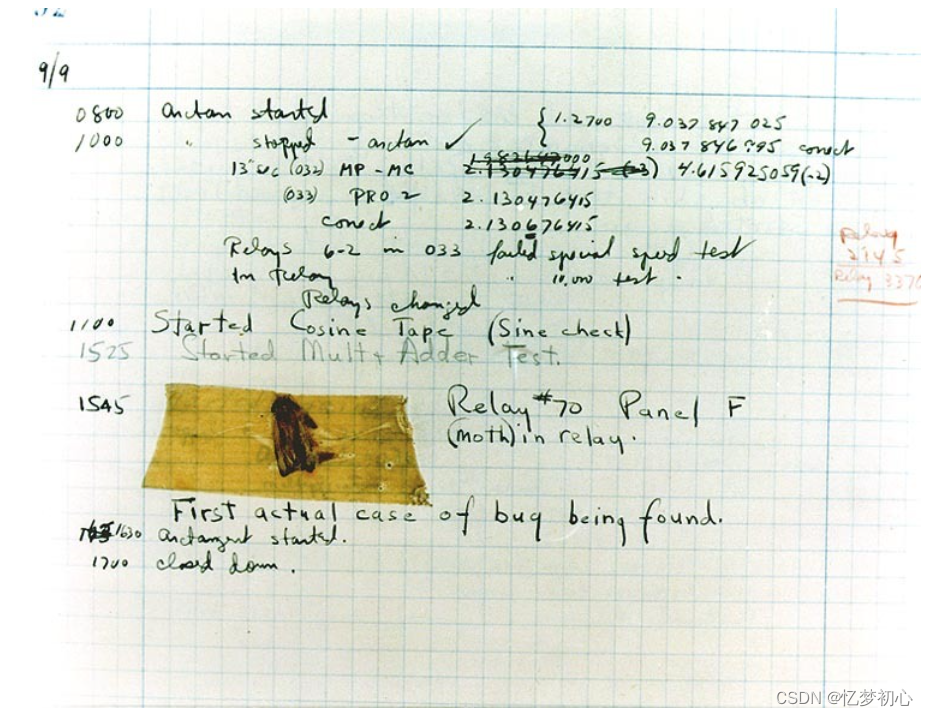 9/9
0800 arctan started { 1.2700 9.037 847 025
1000 " stopped - arctan ✓ 9.037 846 995 correct
13"uc (032) MP - MC 2.130476415 (-3) 4.615925059(-2)
(033) PRO 2 2.130476415
correct 2.130676415
Relays 6-2 in 033 failed special speed test
In Relay " 10,000 test.
Relay
2145
Relay 3370
Relays changed
1100 Started Cosine Tape (Sine check)
1525 Started Mult+Adder Test.
1545 Relay #70 Panel F
(moth) in relay.
First actual case of bug being found.
1630 arctangent started.
1700 closed down.
CSDN @忆梦初心